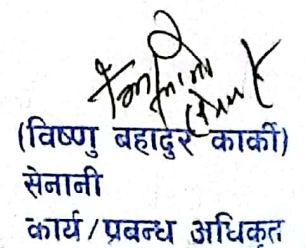 (विष्णु बहादुर कार्की)
सेनानी
कार्य/प्रबन्ध अधिकृत